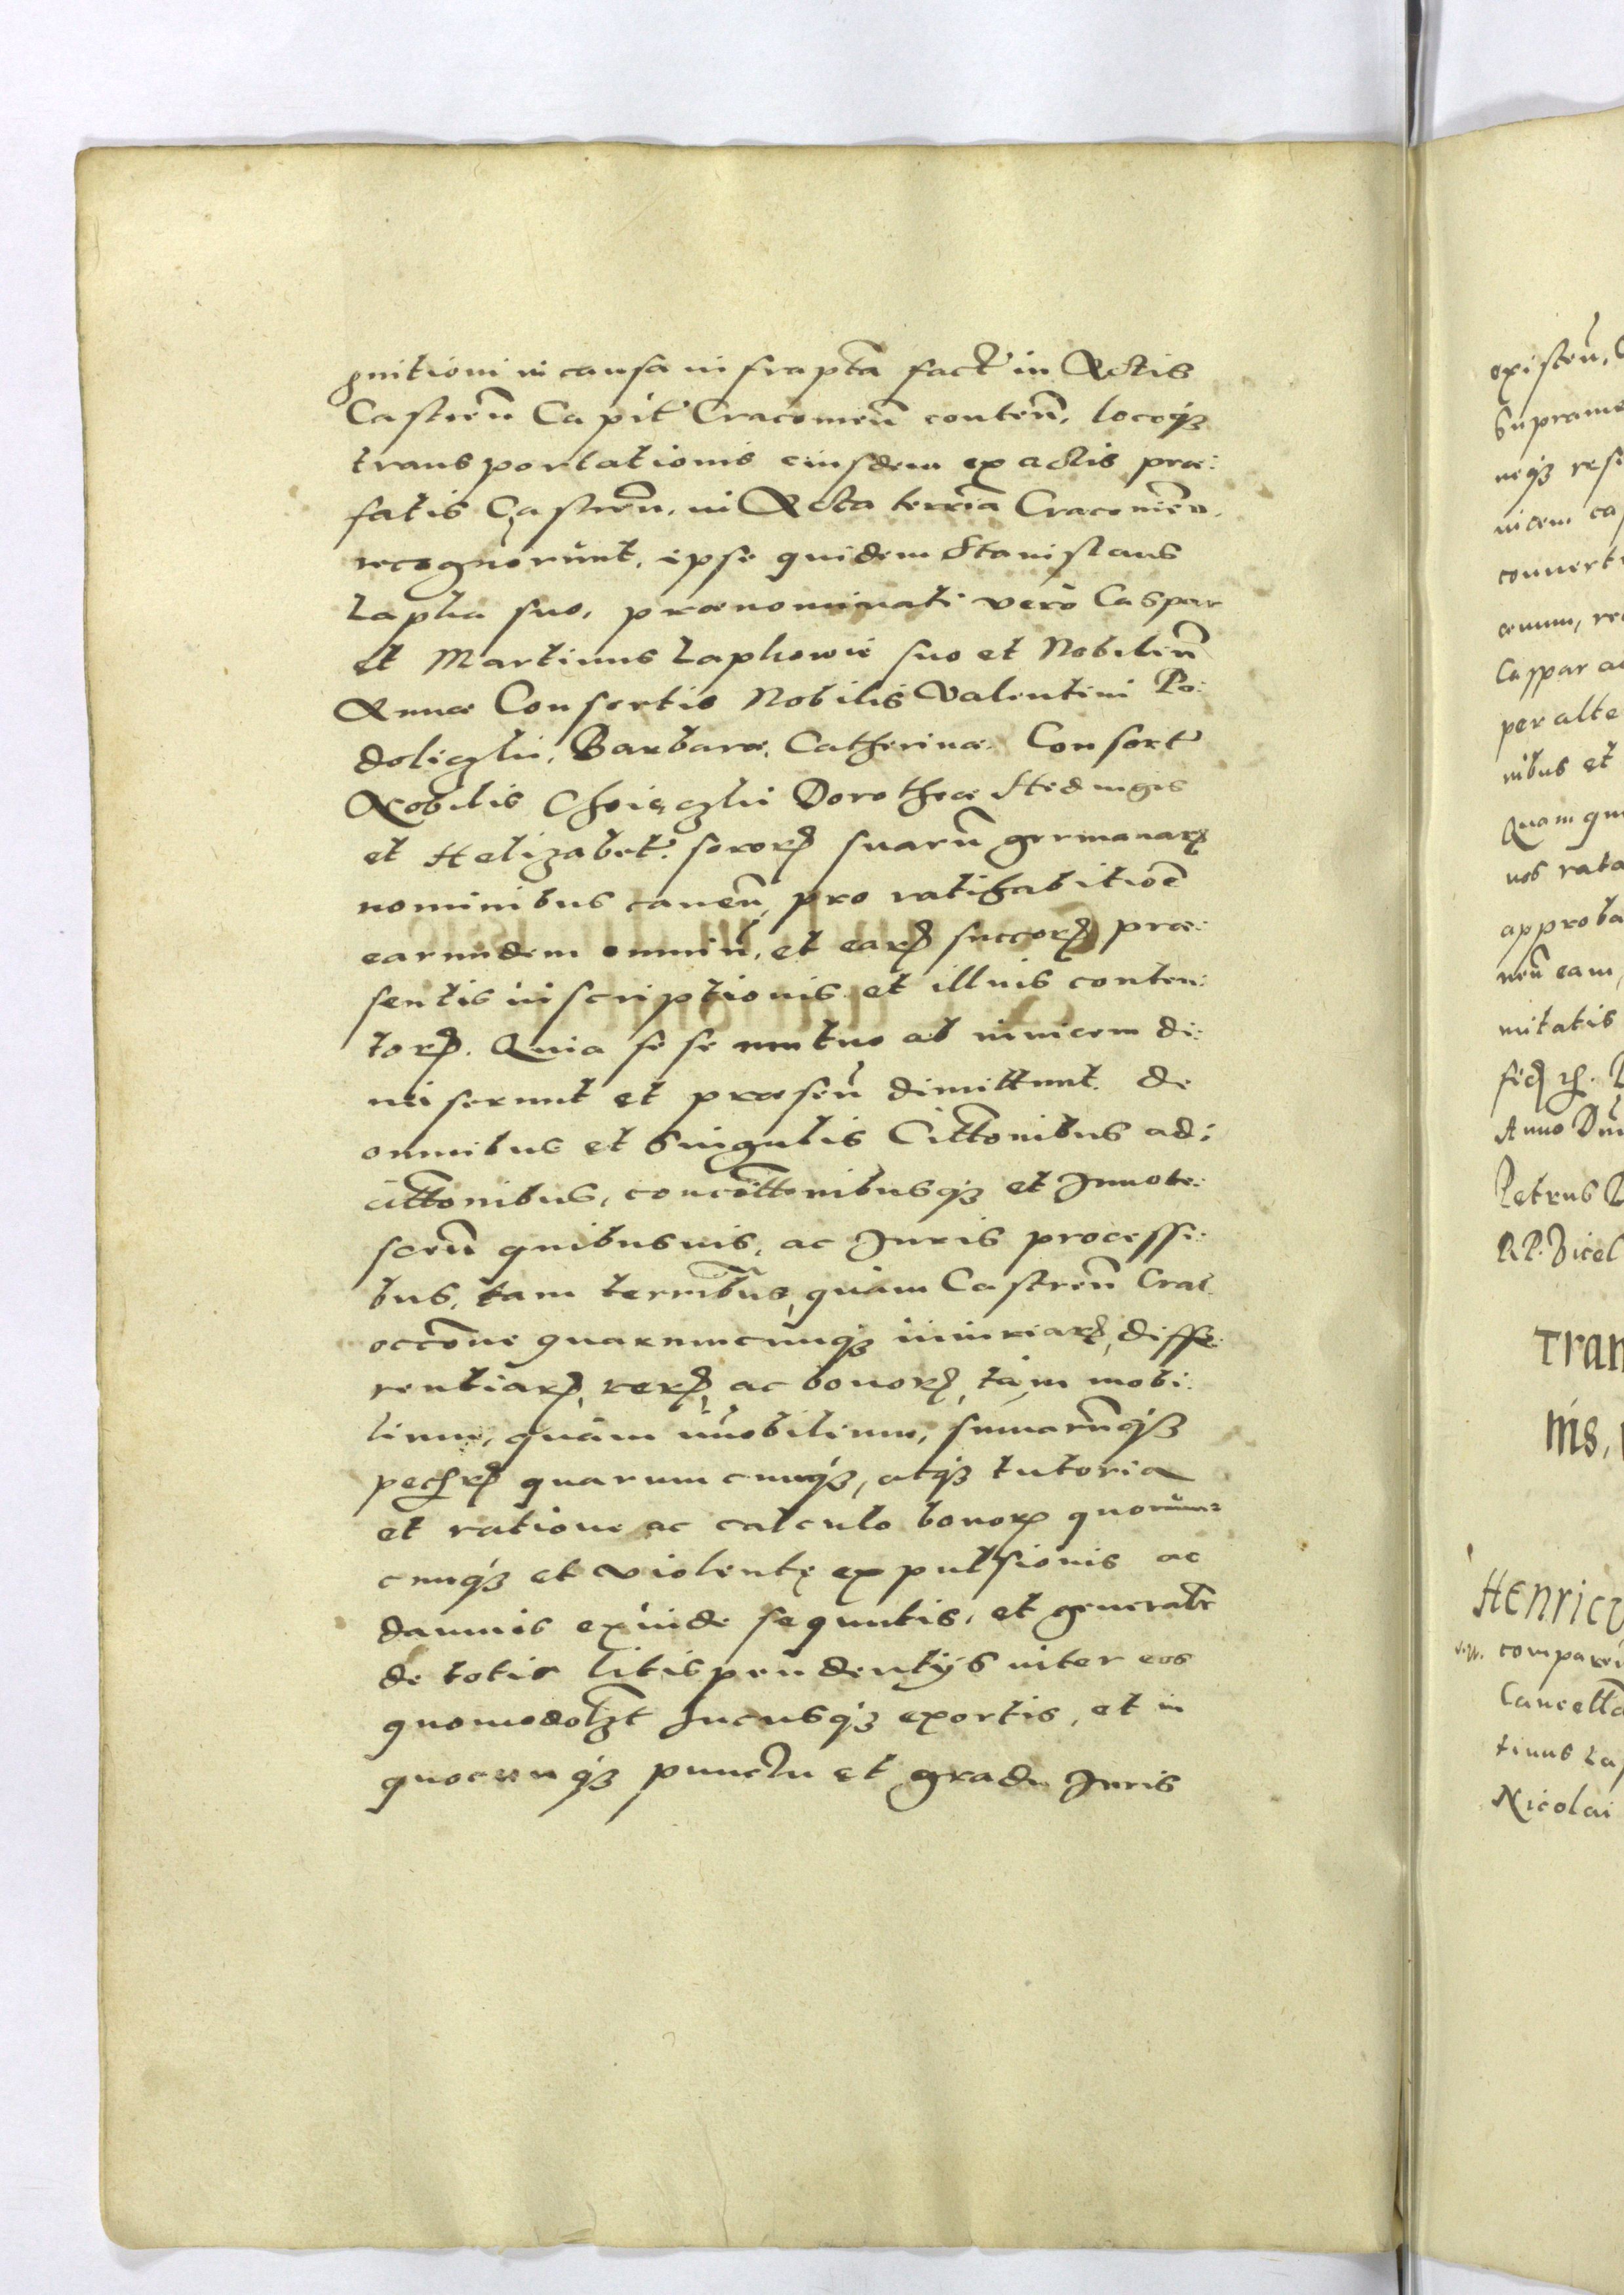 gnitioni in causa infrapta fact in Actis
Castren Capit Cracouien conten, locoq
transportationis eiusdem ex actis præ:
fatis Castren, in Acta terria Cracouien.
recognorunt, ipse quidem Stanislaus
Lapka suo, prænominati vero Caspar
et Martinus Lapkowie suo et Nobiliu
Annæ Consortis Nobilis Valentini Po:
doliczki, Barbaræ, Catherinæ Consort
Nobilis Dorotheæ Hedingis
et Helizabet. soror suaru germanar
nominibus cauen, pro ratihabitioe
earumdem omniu, et ear succor præ:
sentis inscriptionis et illius conten:
tor. Quia sese mutuo ab inuicem di:
miserunt et præsen dimittunt de
omnibus et singulis Cittonibus adi
cittonibus, concittonibusq et Innote:
scen quibusuis, ac Iuris processi:
bus, tam terribus, quam Castren Crac
occone quarumcunq iniuriar, diffe:
rentiar, rer, ac bonor, tam mobi:
lium, quam imobilium, sumaruq
pecr quarumcunq, atq tutoria
et ratione ac calculo bonor quorum=
cunq et violentę expulsionis ac
damnis exinde sequutis, et generalr
de totis litispendentijs inter eos
quomodolzt hucusq exortis, et in
quocunq punctu et gradu Iuris
existen,
supra
neq
nicem
conuert
Caspar
per alte
nibus et
Quam
nos rata
approba
nen eam,
mitatis
Anno Dni
Petrus
R. P. Vicel
Tran
nis,
Henricu
comparen
Cancella
tinus La
Nicolai